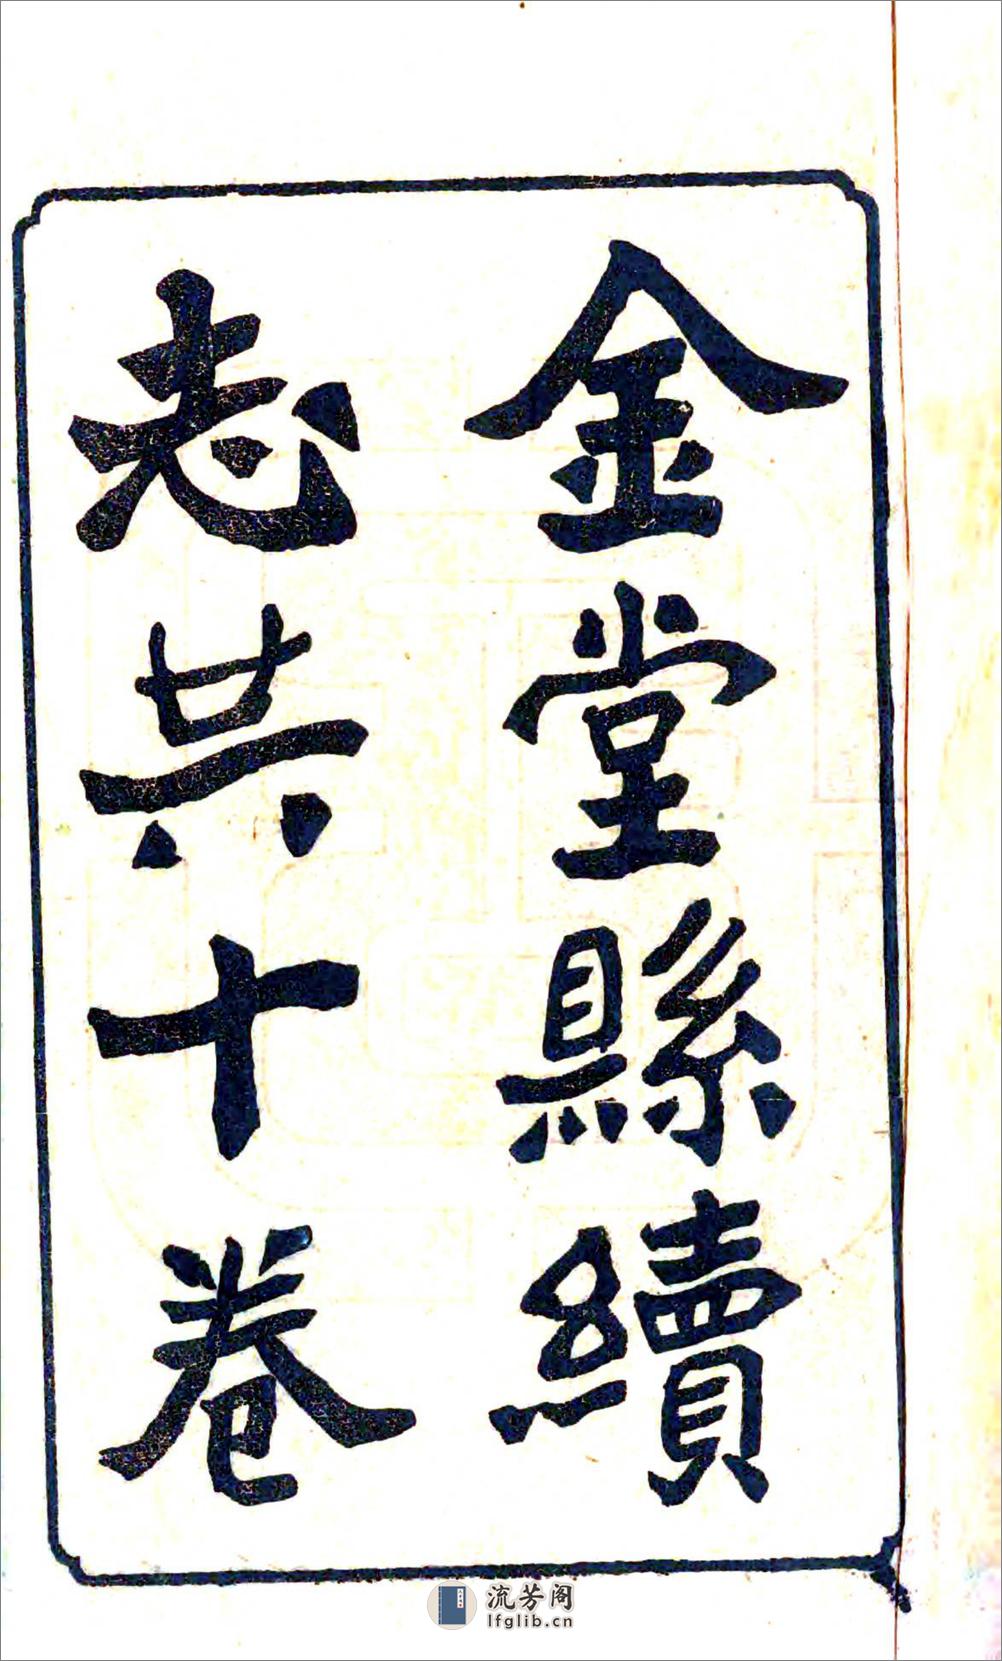 金堂縣續
志共十卷
流芳阁
lfglib.cn